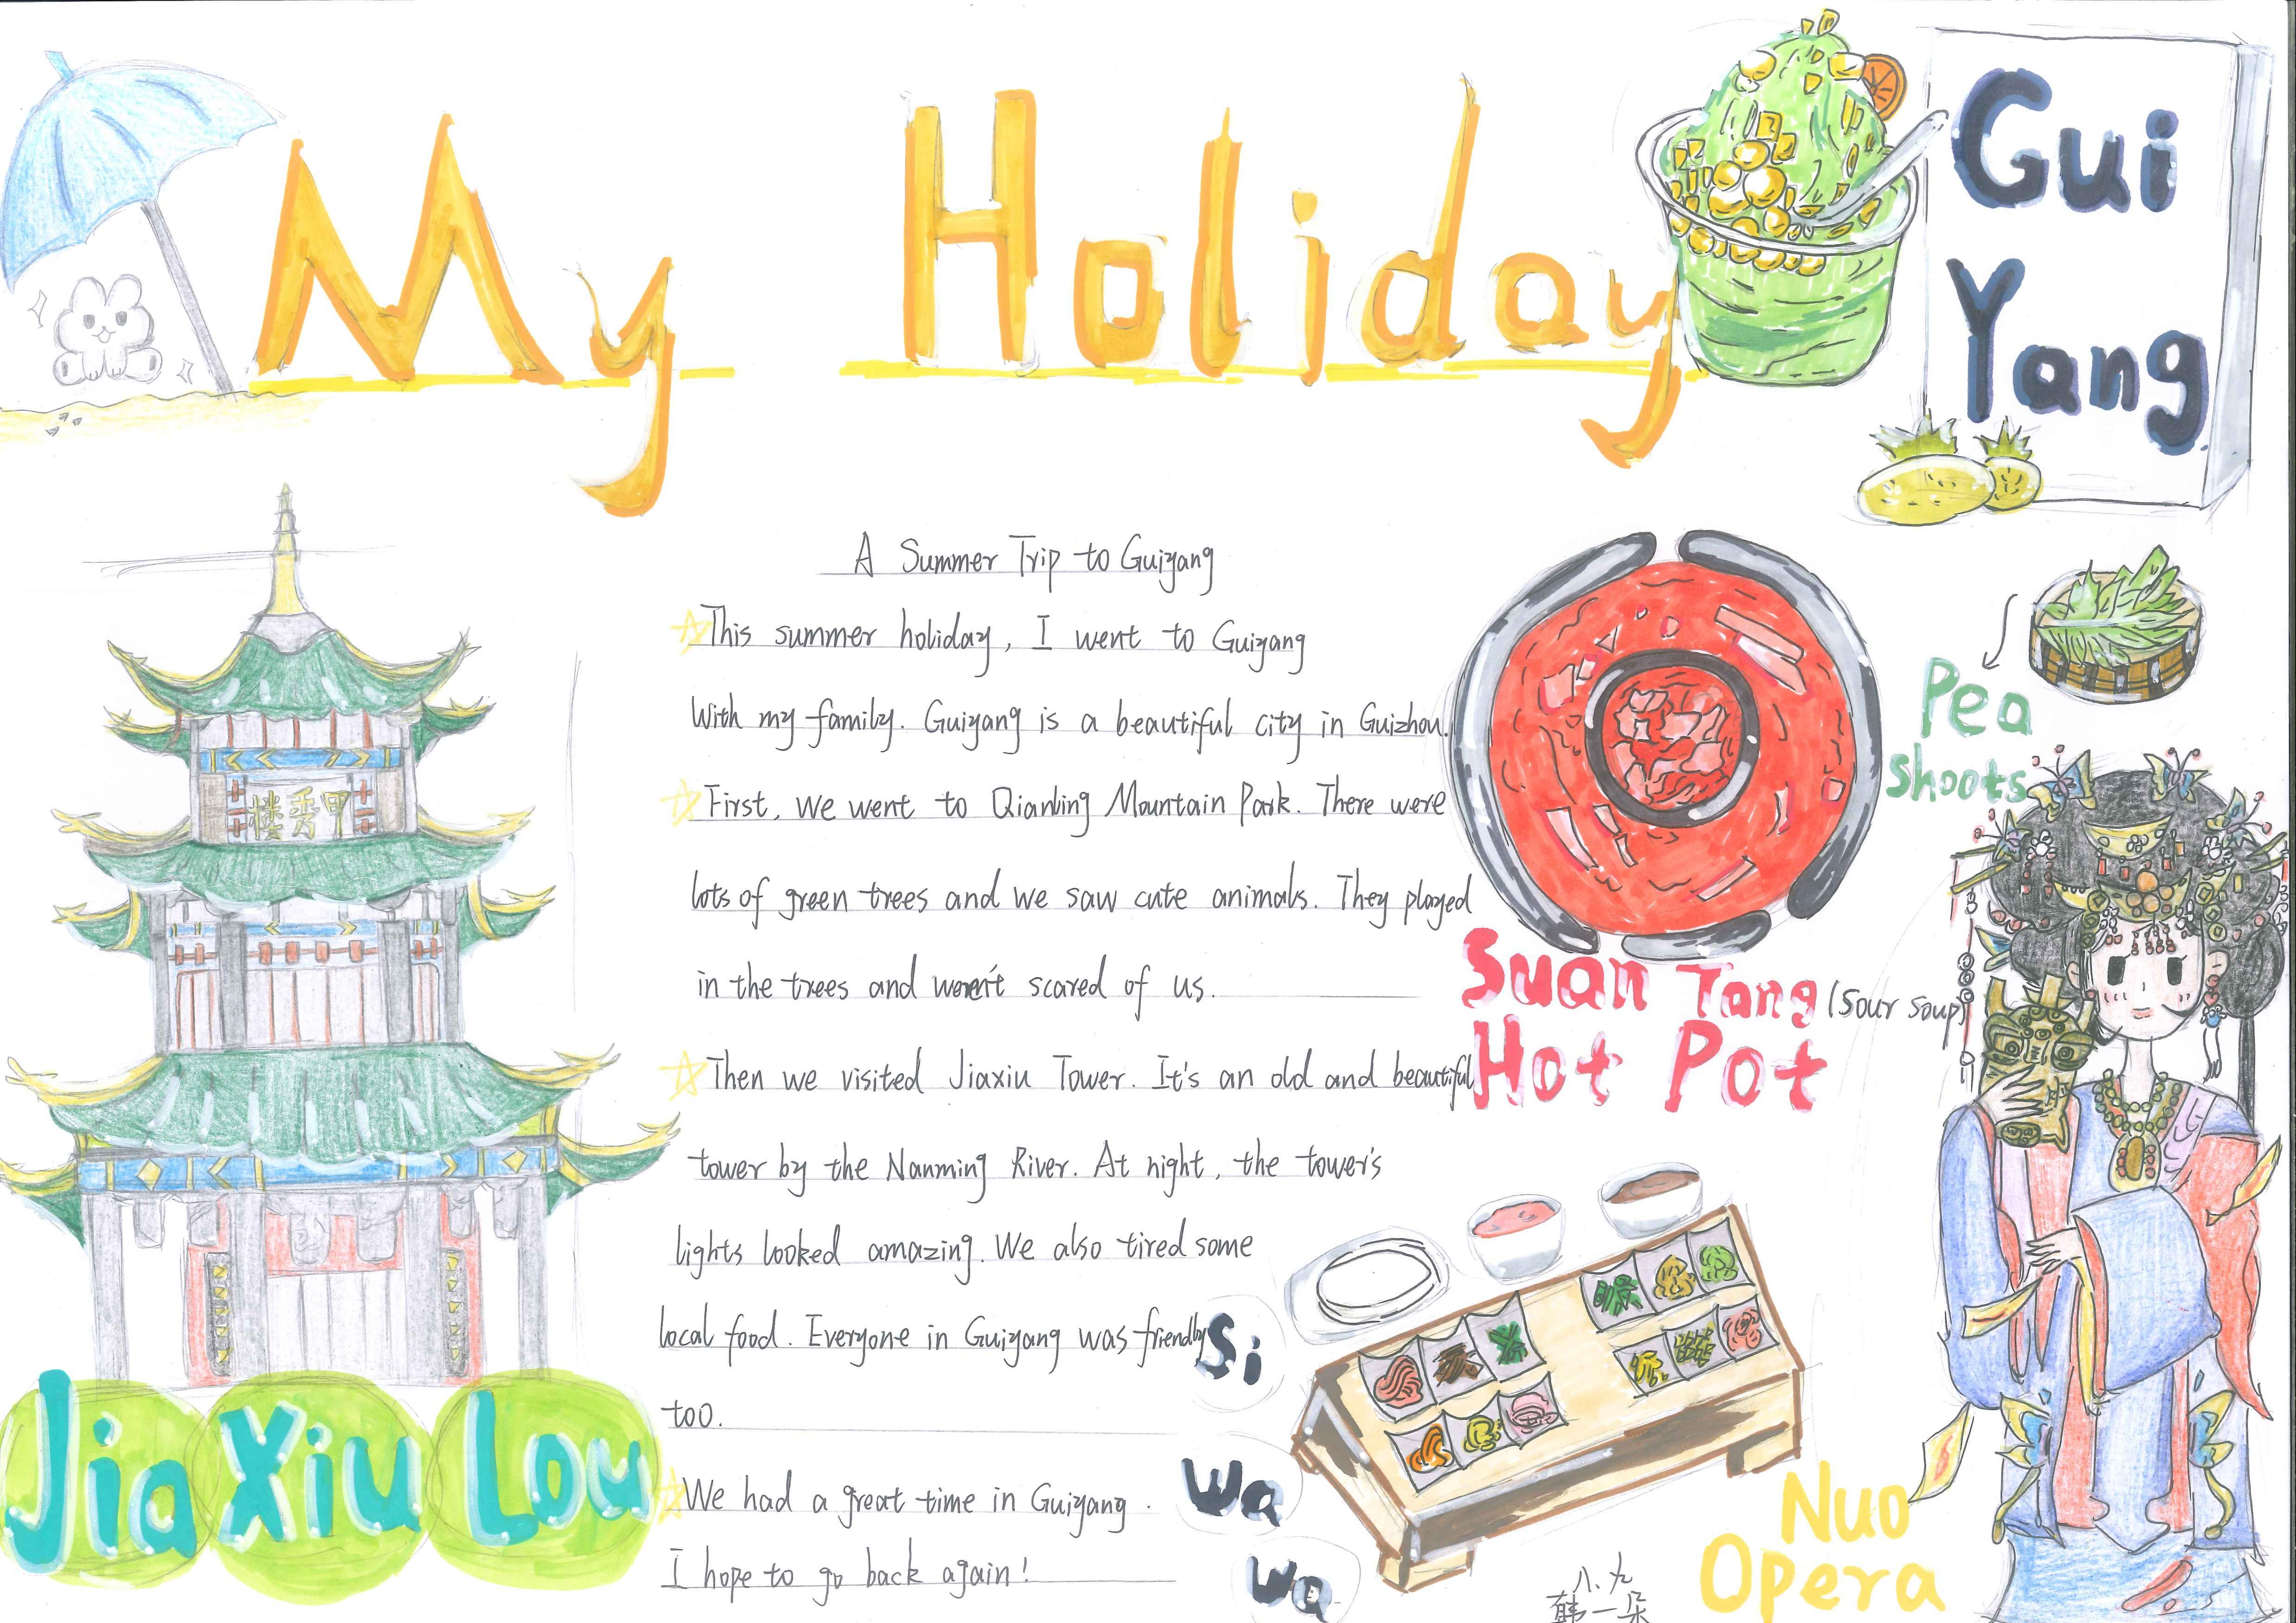 My Holiday
Gui
Yang
A Summer Trip to Guiyang
This summer holiday, I went to Guiyang
with my family. Guiyang is a beautiful city in Guizhou.
First, we went to Qianling Mountain Park. There were
lots of green trees and we saw cute animals. They played
in the trees and weren't scared of us.
Then we visited Jiaxiu Tower. It's an old and beautiful
tower by the Nanming River. At night, the tower's
lights looked amazing. We also tired some
local food. Everyone in Guiyang was friendly
too.
We had a great time in Guiyang.
I hope to go back again!
楼秀甲
Jia Xiu Lou
Pea
shoots
Suan Tang (Sour soup)
Hot Pot
Si
Wa
Wa
Nuo
Opera
八.九
韩一朵